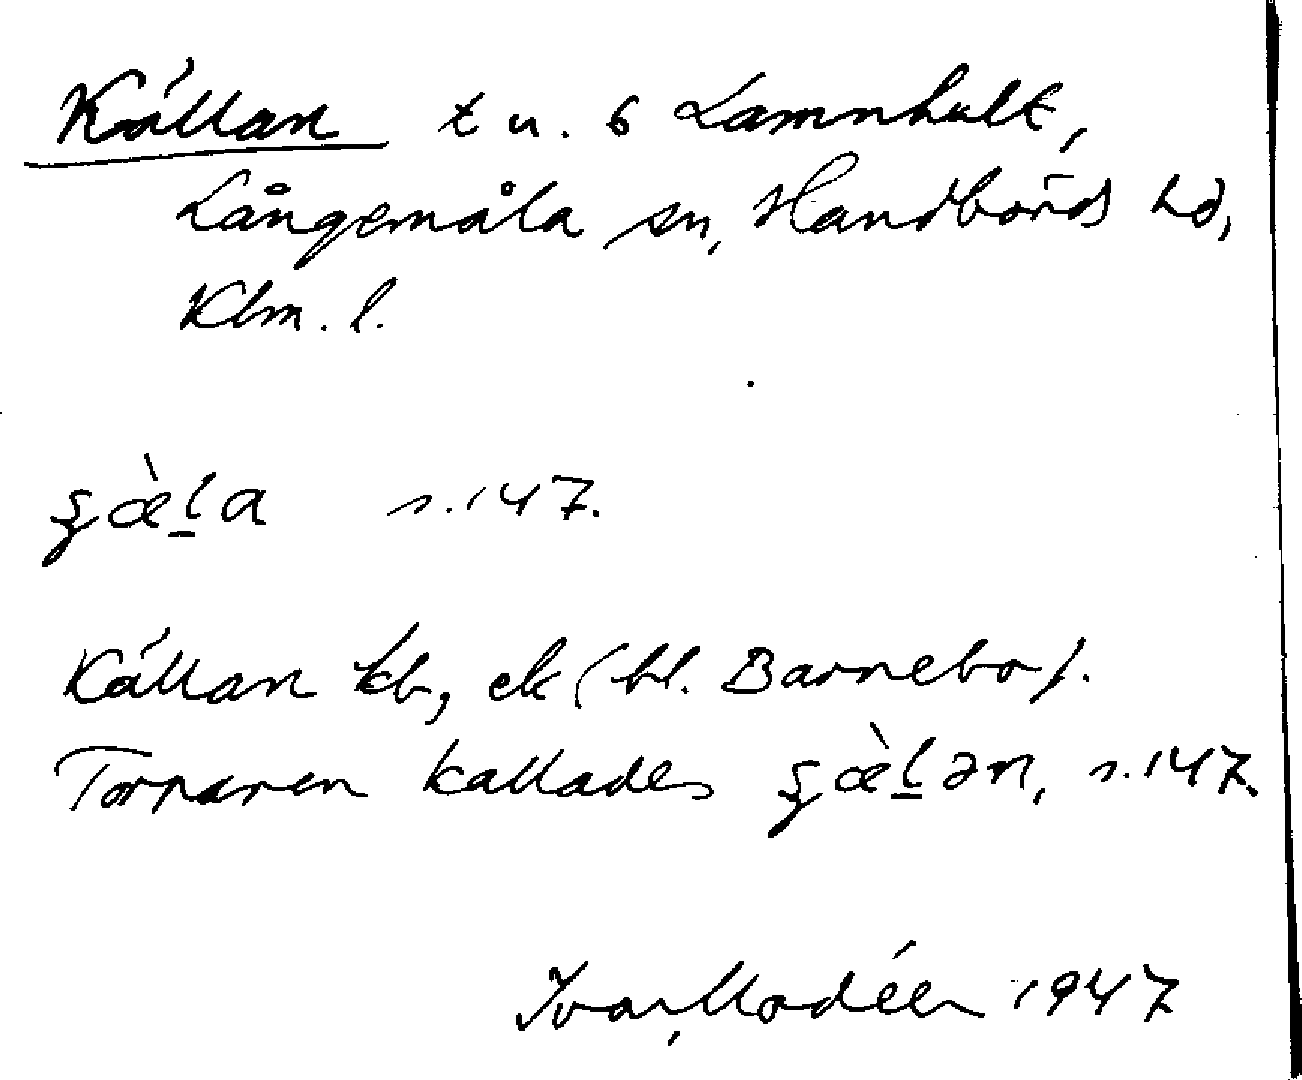 Källan t u. 6 Lamnhult,
Långemåla sn, Handbörds hd,
Klm. l.
ɕæ̀l̠a s. 147.
Källan kb, ek (bl. Barnebo).
Torparen kallades ɕæ̀l̠ən, s. 147.
Ivar Modéer 1947